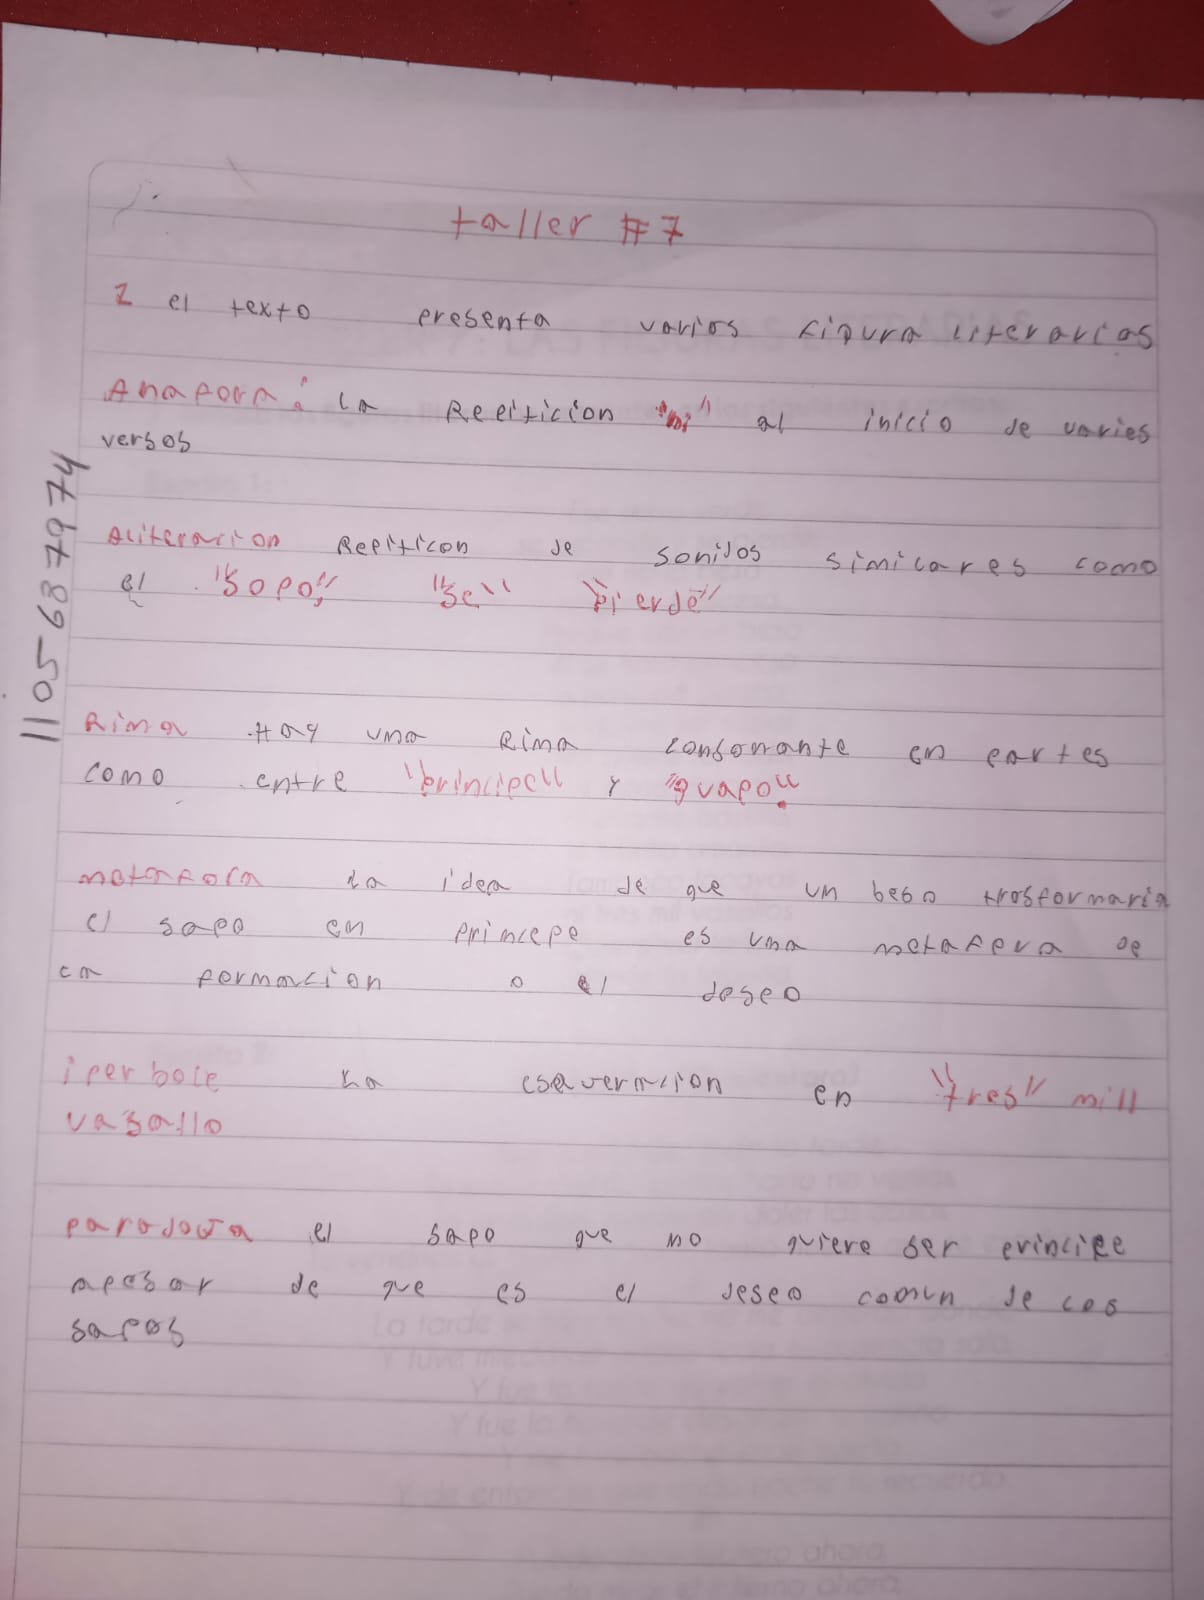 taller #7
1 el texto presenta varios figura literarias
Anafora: la Repiticion "ni" al inicio de varies
versos
Aliteracion Repiticon de sonidos similares como
el "Sopo" "se" "pierde"
Rima Hay una Rima consonante en partes
como entre "principe" y "guapo"
metafora la idea de que un beso trosformaria
el sapo en princepe es una metafera de
la formacion o el deseo
iperbole La esaveracion en "tres" mill
vasallo
el sapo que no quiere ser principe
apesar de que es el deseo comun de los
sapos
1105687974